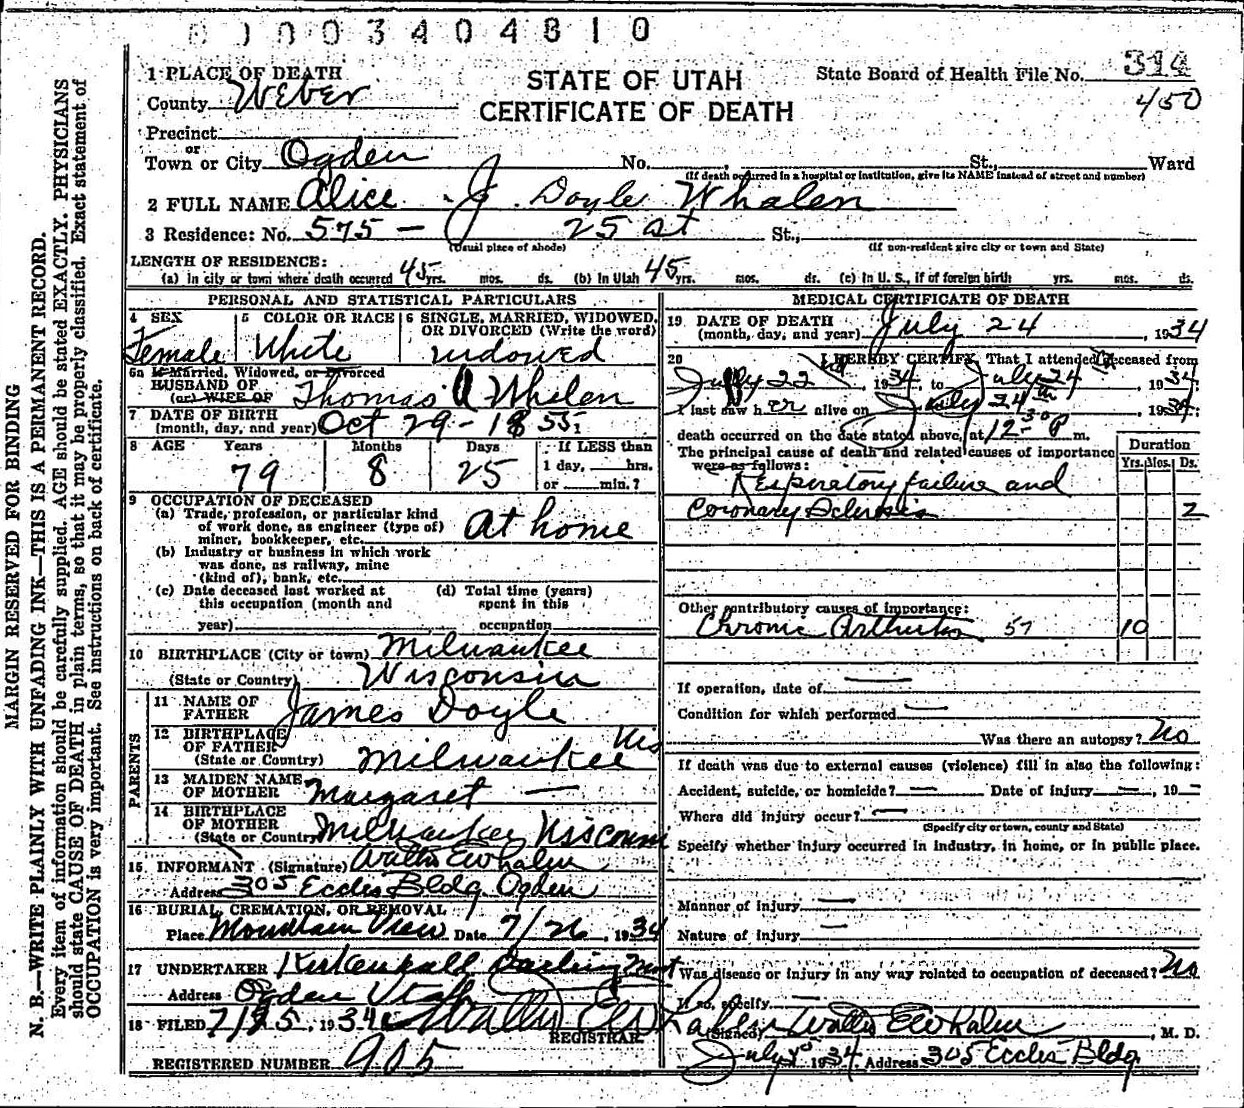 00003404810
1 PLACE OF DEATH
County Weber
STATE OF UTAH
CERTIFICATE OF DEATH
State Board of Health File No. 314
450
Precinct
or
Town or City Ogden No. , St., Ward
(If death occurred in a hospital or institution, give its NAME instead of street and number)
2 FULL NAME Alice J. Doyle Whalen
3 Residence: No. 575 - 25 st St.,
(Usual place of abode) (If non-resident give city or town and State)
LENGTH OF RESIDENCE:
(a) In city or town where death occurred 45 yrs. mos. ds. (b) In Utah 45 yrs. mos. ds. (c) In U. S., if of foreign birth yrs. mos. ds.
PERSONAL AND STATISTICAL PARTICULARS
4 SEX
Female
5 COLOR OR RACE
White
6 SINGLE, MARRIED, WIDOWED, OR DIVORCED (Write the word)
widowed
6a If Married, Widowed, or Divorced
HUSBAND OF
(or) WIFE OF Thomas A Whalen
7 DATE OF BIRTH
(month, day, and year) Oct 29 - 1855
8 AGE Years Months Days If LESS than
79 8 25 1 day, hrs.
or min.?
9 OCCUPATION OF DECEASED
(a) Trade, profession, or particular kind
of work done, as engineer (type of)
miner, bookkeeper, etc. At home
(b) Industry or business in which work
was done, as railway, mine
(kind of), bank, etc.
(c) Date deceased last worked at
this occupation (month and
year)
(d) Total time (years)
spent in this
occupation
10 BIRTHPLACE (City or town) Milwaukee
(State or Country) Wisconsin
PARENTS
11 NAME OF
FATHER James Doyle
12 BIRTHPLACE
OF FATHER
(State or Country) Milwaukee Wis
13 MAIDEN NAME
OF MOTHER Margaret —
14 BIRTHPLACE
OF MOTHER
(State or Country) Milwaukee Wisconsin
15 INFORMANT (Signature) Walter E Whalen
Address 305 Eccles Bldg. Ogden
16 BURIAL, CREMATION, OR REMOVAL
Place Mountain View Date 7/26, 1934
17 UNDERTAKER Kirkendall Darling
Address Ogden Utah
18 FILED 7/25, 1934
REGISTRAR
REGISTERED NUMBER 905
MEDICAL CERTIFICATE OF DEATH
19 DATE OF DEATH
(month, day, and year) July 24, 1934
20 I HEREBY CERTIFY, That I attended deceased from
July 22nd, 1934 to July 24th, 1934;
I last saw her alive on July 24th, 1934;
death occurred on the date stated above, at 12-30 P m.
The principal cause of death and related causes of importance
were as follows:
Duration
Yrs. Mos. Ds.
Respiratory failure and
Coronary Sclerosis 2
Other contributory causes of importance:
Chronic Arthritis 57 10
If operation, date of —
Condition for which performed —
Was there an autopsy? No
If death was due to external causes (violence) fill in also the following:
Accident, suicide, or homicide? — Date of injury —, 19 -
Where did injury occur? —
(Specify city or town, county and State)
Specify whether injury occurred in industry, in home, or in public place.
Manner of injury —
Nature of injury —
Was disease or injury in any way related to occupation of deceased? No
If so, specify —
(Signed) Walter E Whalen, M. D.
July 1934 Address 305 Eccles Bldg
MARGIN RESERVED FOR BINDING
N. B.—WRITE PLAINLY WITH UNFADING INK—THIS IS A PERMANENT RECORD.
Every item of information should be carefully supplied. AGE should be stated EXACTLY. PHYSICIANS
should state CAUSE OF DEATH in plain terms, so that it may be properly classified. Exact statement of
OCCUPATION is very important. See instructions on back of certificate.